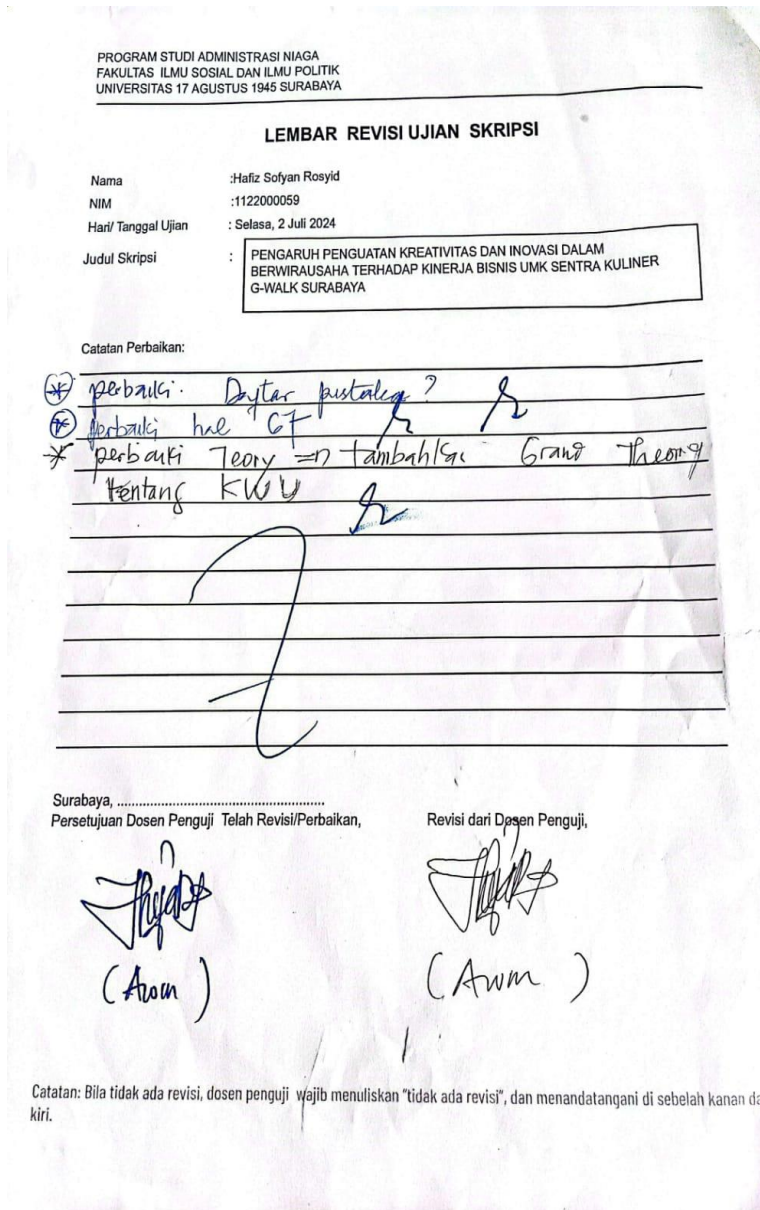 PROGRAM STUDI ADMINISTRASI NIAGA
FAKULTAS ILMU SOSIAL DAN ILMU POLITIK
UNIVERSITAS 17 AGUSTUS 1945 SURABAYA
LEMBAR REVISI UJIAN SKRIPSI
Nama :Hafiz Sofyan Rosyid
NIM :1122000059
Hari/ Tanggal Ujian : Selasa, 2 Juli 2024
Judul Skripsi : PENGARUH PENGUATAN KREATIVITAS DAN INOVASI DALAM
BERWIRAUSAHA TERHADAP KINERJA BISNIS UMK SENTRA KULINER
G-WALK SURABAYA
Catatan Perbaikan:
* perbaiki. Daftar pustaka ?
* perbaiki hal 67
* perbaiki Teory => tambahkan Grand Theory
tentang KWU
Surabaya, ........................................................
Persetujuan Dosen Penguji Telah Revisi/Perbaikan, Revisi dari Dosen Penguji,
Catatan: Bila tidak ada revisi, dosen penguji wajib menuliskan "tidak ada revisi", dan menandatangani di sebelah kanan da
kiri.